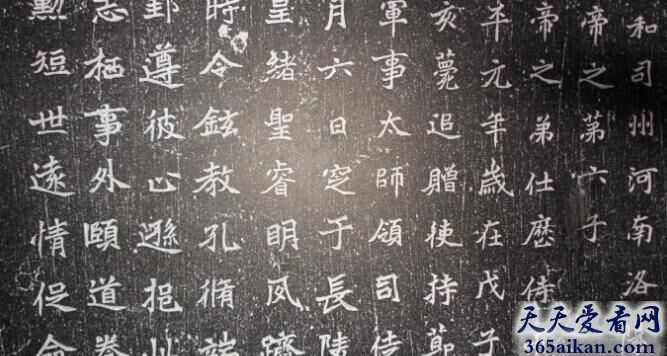 和司州河南洛
帝之第六子
帝之弟仕歷侍
平元年歲在戊子
亥薨追贈使持節
軍事太師領司徒
月六日窆于長陵
皇緒聖睿明夙躋
時令鉉教孔脩端
郢遵彼止遜挹以
志栖事外頤道養
勳短世遠情促命
天天爱看网
365aikan.com